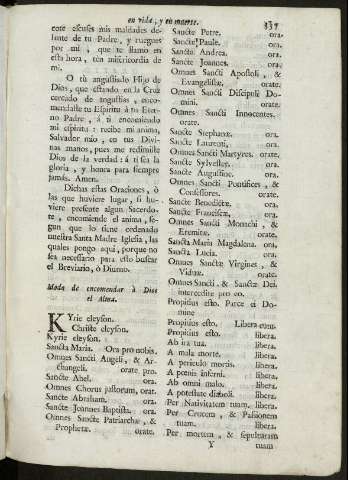 en vida, y en muerte. 337
rote escuses mis maldades de-
lante de tu Padre, y ruegues
por mi, que te llamo en
esta hora, ten misericordia de
mi.
O tù angustiado Hijo de
Dios, que estando en la Cruz
cercado de angustias, enco-
mendaste tu Espiritu à tu Eter-
no Padre, à ti encomiendo
mi espiritu: recibe mi anima,
Salvador mio, en tus Divi-
nas manos, pues me redimiste
Dios de la verdad: à ti sea la
gloria, y honra para siempre
jamàs. Amen.
Dichas estas Oraciones, ò
las que huviere lugar, si hu-
viere presente algun Sacerdo-
te, encomiende el anima, se-
gun que lo tiene ordenado
nuestra Santa Madre Iglesia, las
quales pongo aqui, porque no
sea necesario para esto buscar
el Breviario, ò Diurno.
Modo de encomendar à Dios
el Alma.
Kyrie eleyson.
Christe eleyson.
Kyrie eleyson.
Sancta Maria. Ora pro nobis.
Omnes Sancti Angeli, & Ar-
changeli. orate pro.
Sancte Abel. ora.
Omnes Chorus justorum, orat.
Sancte Abraham. ora.
Sancte Joannes Baptista. ora.
Omnes Sancti Patriarchæ, &
Prophetæ. orate.
Sancte Petre. ora.
Sancte Paule. ora.
Sancte Andrea. ora.
Sancte Joannes. ora.
Omnes Sancti Apostoli, &
Evangelistæ. orate.
Omnes Sancti Discipuli Do-
mini. orate.
Omnes Sancti Innocentes.
orate.
Sancte Stephane. ora.
Sancte Laurenti, ora.
Omnes Sancti Martyres. orate.
Sancte Sylvester. ora.
Sancte Augustine. ora.
Omnes Sancti Pontifices, &
Confessores. orate.
Sancte Benedicte. ora.
Sancte Francisce. ora.
Omnes Sancti Monachi, &
Eremitæ. orate.
Sancta Maria Magdalena. ora.
Sancta Lucia. ora.
Omnes Sanctæ Virgines, &
Viduæ. orate.
Omnes Sancti, & Sanctæ Dei
intercedite pro eo.
Propitius esto. Parce ei Do-
mine
Propitius esto. Libera eum.
Propitius esto. libera.
Ab ira tua. libera.
A mala morte. libera.
A periculo mortis. libera.
A penis inferni. libera.
Ab omni malo. libera.
A potestate diaboli. libera.
Per Nativitatem tuam. libera.
Per Crucem, & Passionem
tuam. libera.
Per mortem, & sepulturam
Y tuam